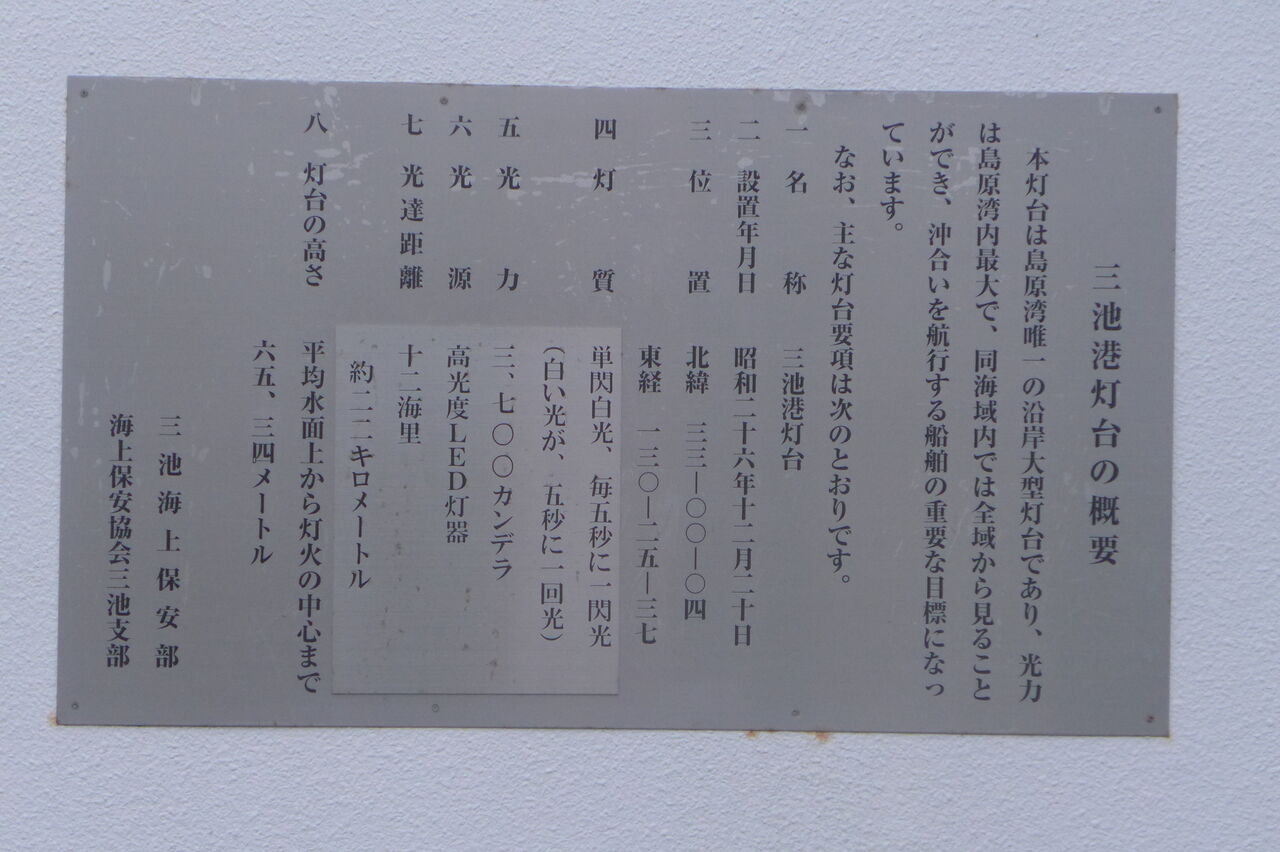 三池港灯台の概要
本灯台は島原湾唯一の沿岸大型灯台であり、光力
は島原湾内最大で、同海域内では全域から見ること
ができ、沖合いを航行する船舶の重要な目標になっ
ています。
なお、主な灯台要項は次のとおりです。
一 名称 三池港灯台
二 設置年月日 昭和二十六年十二月二十日
三 位置 北緯 三三―〇〇―〇四
東経 一三〇―二五―三七
四 灯質 単閃白光、毎五秒に一閃光
(白い光が、五秒に一回光)
五 光力 三、七〇〇カンデラ
六 光源 高光度LED灯器
七 光達距離 十二海里
約二二キロメートル
八 灯台の高さ 平均水面上から灯火の中心まで
六五、三四メートル
三池海上保安部
海上保安協会三池支部